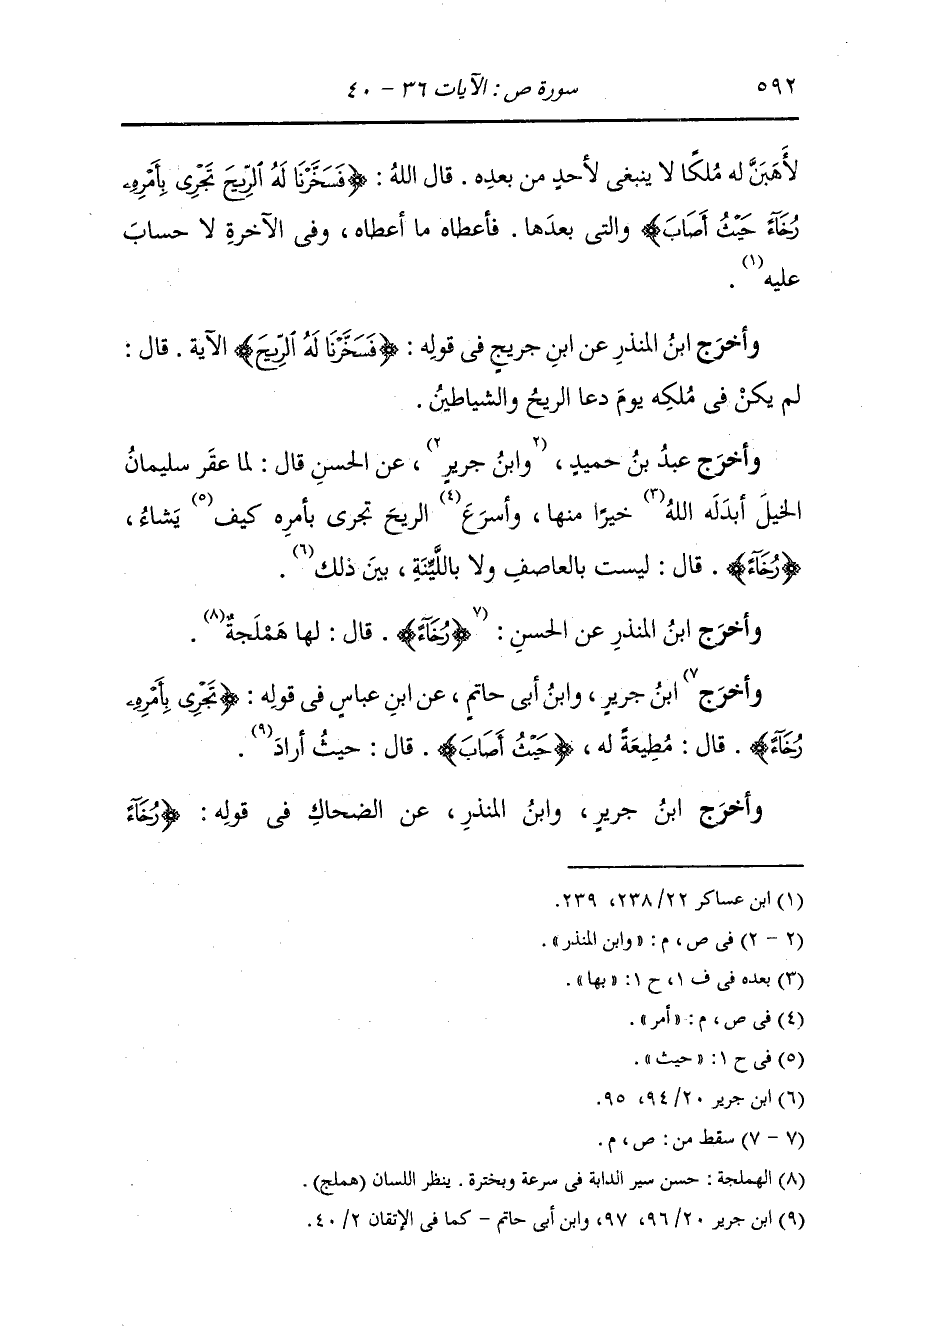 ٥٩٢
سورة ص : الآيات ٣٦ - ٤٠
لأَهَبَنَّ له مُلكًا لا ينبغى لأحدٍ من بعدِه . قال اللهُ : ﴿فَسَخَّرْنَا لَهُ ٱلرِّيحَ تَجْرِى بِأَمْرِهِۦ
رُخَآءً حَيْثُ أَصَابَ﴾ والتى بعدَها . فأعطاه ما أعطاه ، وفى الآخرةِ لا حسابَ
عليه(١) .
وأخرَج ابنُ المنذرِ عن ابنِ جريجٍ فى قولِه : ﴿فَسَخَّرْنَا لَهُ ٱلرِّيحَ﴾ الآية . قال :
لم يكنْ فى مُلكِه يومَ دعا الريحُ والشياطينُ .
وأخرَج عبدُ بنُ حميدٍ ، (٢وابنُ جريرٍ٢) ، عن الحسنِ قال : لما عقَر سليمانُ
الخيلَ أبدَلَه اللهُ(٣) خيرًا منها ، وأسرَعَ(٤) الريحَ تجرى بأمرِه كيف(٥) يَشاءُ ،
﴿رُخَآءً﴾ . قال : ليست بالعاصفِ ولا باللَّيِّنَةِ ، بينَ ذلك(٦) .
وأخرَج ابنُ المنذرِ عن الحسنِ : (٧﴿رُخَآءً﴾ . قال : لها هَمْلَجةٌ(٨) .
وأخرَج٧) ابنُ جريرٍ ، وابنُ أبى حاتمٍ ، عن ابنِ عباسٍ فى قولِه : ﴿تَجْرِى بِأَمْرِهِۦ
رُخَآءً﴾ . قال : مُطِيعَةً له ، ﴿حَيْثُ أَصَابَ﴾ . قال : حيثُ أرادَ(٩) .
وأخرَج ابنُ جريرٍ ، وابنُ المنذرِ ، عن الضحاكِ فى قولِه : ﴿رُخَآءً
(١) ابن عساكر ٢٢/ ٢٣٨، ٢٣٩.
(٢ - ٢) فى ص ، م : «وابن المنذر» .
(٣) بعده فى ف ١، ح ١: «بها» .
(٤) فى ص ، م : «أمر» .
(٥) فى ح ١: «حيث» .
(٦) ابن جرير ٢٠/ ٩٤، ٩٥.
(٧ - ٧) سقط من : ص ، م .
(٨) الهملجة : حسن سير الدابة فى سرعة وبخترة . ينظر اللسان (هملج) .
(٩) ابن جرير ٢٠/ ٩٦، ٩٧، وابن أبى حاتم - كما فى الإتقان ٢/ ٤٠.